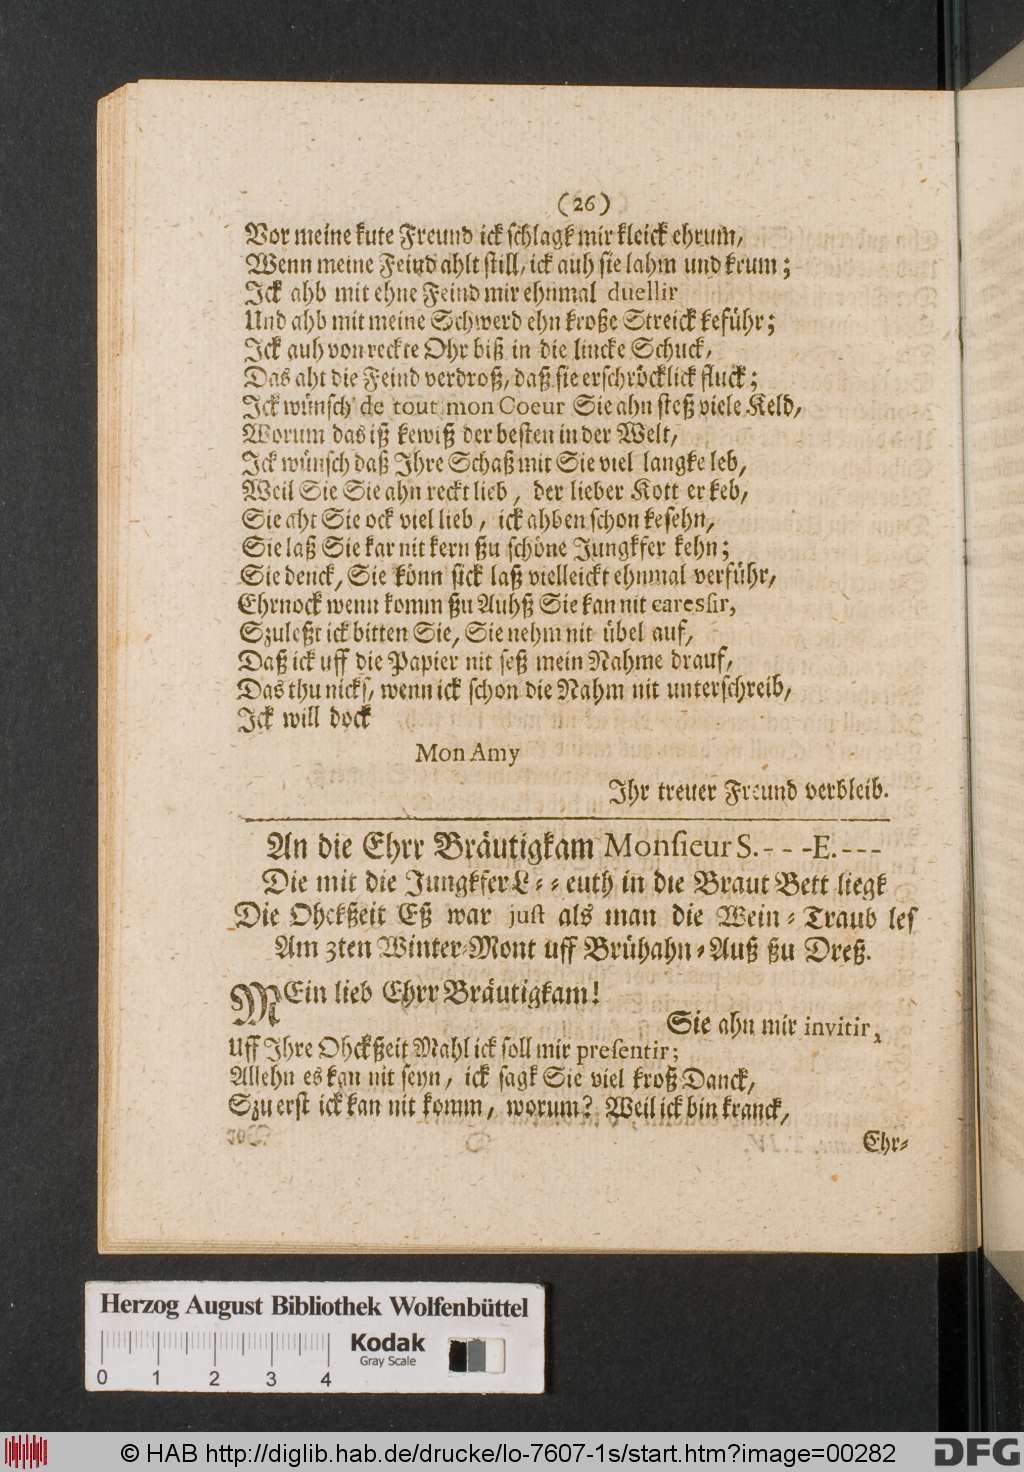 (26)
Vor meine kute Freund ick schlagk mir kleick ehrum,
Wenn meine Feind ahlt still, ick auh sie lahm und krum;
Ick ahb mit ehne Feind mir ehnmal duellir
Und ahb mit meine Schwerd ehn kroße Streick keführ;
Ick auh von reckte Ohr biß in die lincke Schuck,
Das aht die Feind verdroß, daß sie erschröcklick fluck;
Ick wünsch de tout mon Coeur Sie ahn steß viele Keld,
Worum das iß kewiß der besten in der Welt,
Ick wünsch daß Ihre Schaß mit Sie viel langke leb,
Weil Sie Sie ahn reckt lieb, der lieber Kott er keb,
Sie aht Sie ock viel lieb, ick ahben schon kesehn,
Sie laß Sie kar nit kern ßu schöne Jungkfer kehn;
Sie denck, Sie könn sick laß vielleickt ehnmal verführ,
Ehrnock wenn komm ßu Auhß Sie kan nit caressir,
Szuleßt ick bitten Sie, Sie nehm nit übel auf,
Daß ick uff die Papier nit seß mein Nahme drauf,
Das thu nicks, wenn ick schon die Nahm nit unterschreib,
Ick will dock
Mon Amy
Ihr treuer Freund verbleib.
An die Ehrr Bräutigkam Monsieur S. - - -E. - - -
Die mit die Jungkfer L= = euth in die Braut Bett liegk
Die Ohckßeit Eß war just als man die Wein= Traub les
Am 3ten Winter=Mont uff Brühahn=Auß ßu Dreß.
MEin lieb Ehrr Bräutigkam!
Sie ahn mir invitir,
Uff Ihre Ohckßeit Mahl ick soll mir presentir;
Allehn es kan nit seyn, ick sagk Sie viel kroß Danck,
Szu erst ick kan nit komm, worum? Weil ick bin kranck,
Ehr=
Herzog August Bibliothek Wolfenbüttel
Kodak
Gray Scale
0 1 2 3 4
© HAB http://diglib.hab.de/drucke/lo-7607-1s/start.htm?image=00282
DFG